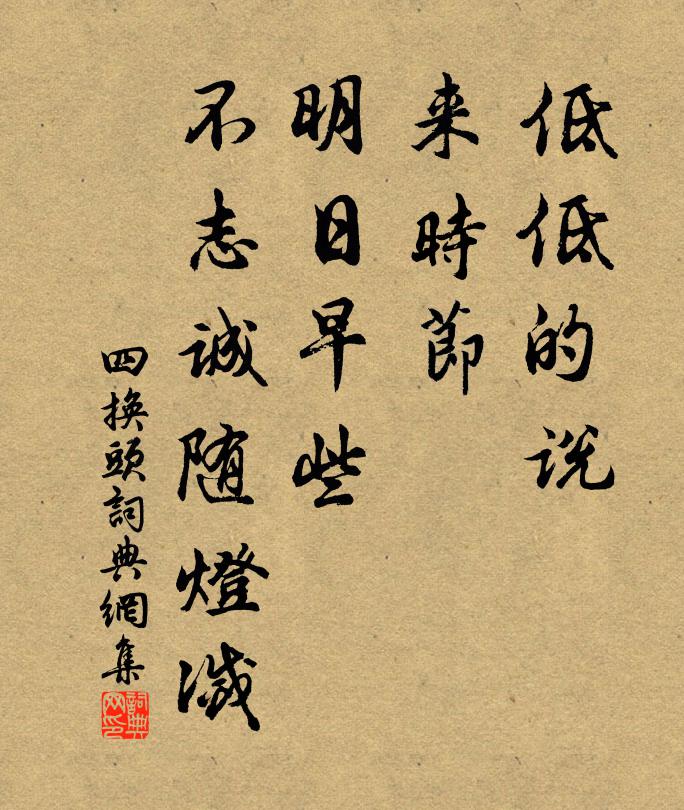 低低的说
来時節
明日早些
不志誠随燈滅
四换頭詞典網集
詞典網印